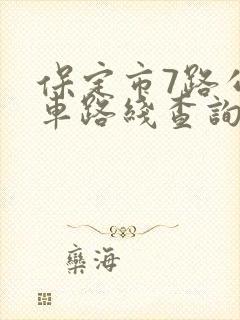 保定市7路公
車路綫查詢
欒海